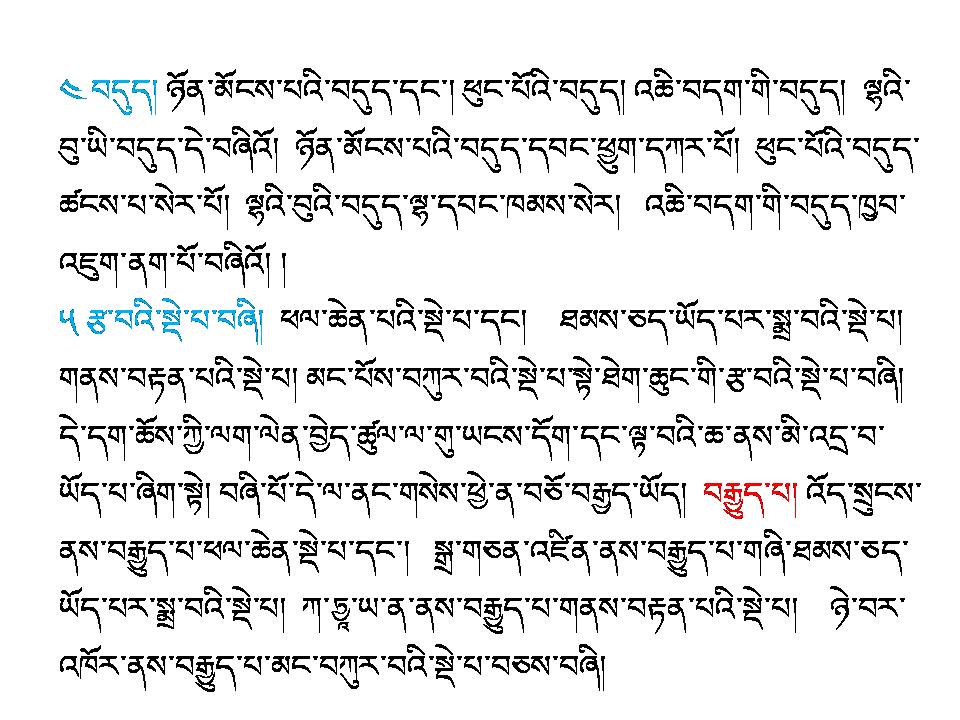 ༤ བདུད། ཉོན་མོངས་པའི་བདུད་དང་། ཕུང་པོའི་བདུད། འཆི་བདག་གི་བདུད། ལྷའི་
བུ་ཡི་བདུད་དེ་བཞིའོ། ཉོན་མོངས་པའི་བདུད་དབང་ཕྱུག་དཀར་པོ། ཕུང་པོའི་བདུད་
ཚངས་པ་སེར་པོ། ལྷའི་བུའི་བདུད་ལྷ་དབང་ཁམས་སེར། འཆི་བདག་གི་བདུད་ཁྱབ་
འཇུག་ནག་པོ་བཞིའོ། །
༥ རྩ་བའི་སྡེ་པ་བཞི། ཕལ་ཆེན་པའི་སྡེ་པ་དང། ཐམས་ཅད་ཡོད་པར་སྨྲ་བའི་སྡེ་པ།
གནས་བརྟན་པའི་སྡེ་པ། མང་པོས་བཀུར་བའི་སྡེ་པ་སྟེ་ཐེག་ཆུང་གི་རྩ་བའི་སྡེ་པ་བཞི།
དེ་དག་ཆོས་ཀྱི་ལག་ལེན་བྱེད་ཚུལ་ལ་གུ་ཡངས་དོག་དང་ལྟ་བའི་ཆ་ནས་མི་འདྲ་བ་
ཡོད་པ་ཞིག་སྟེ། བཞི་པོ་དེ་ལ་ནང་གསེས་ཕྱེ་ན་བཅོ་བརྒྱད་ཡོད། བརྒྱུད་པ། འོད་སྲུངས་
ནས་བརྒྱུད་པ་ཕལ་ཆེན་སྡེ་པ་དང་། སྒྲ་གཅན་འཛིན་ནས་བརྒྱུད་པ་གཞི་ཐམས་ཅད་
ཡོད་པར་སྨྲ་བའི་སྡེ་པ། ཀ་ཏྱཱ་ཡ་ན་ནས་བརྒྱུད་པ་གནས་བརྟན་པའི་སྡེ་པ། ཉེ་བར་
འཁོར་ནས་བརྒྱུད་པ་མང་བཀུར་བའི་སྡེ་པ་བཅས་བཞི།